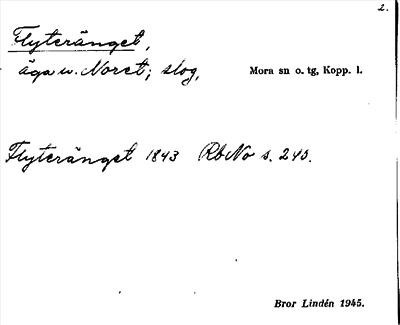 2.
Flyteränget,
äga u. Noret; slog,
Mora sn o. tg, Kopp. l.
Flyteränget 1843 RbNo s. 245.
Bror Lindén 1945.